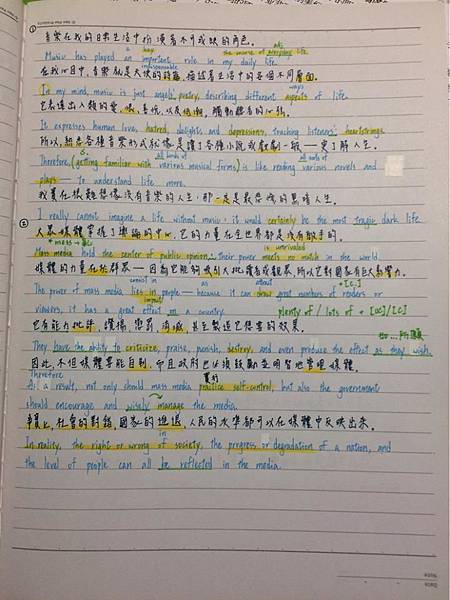 ①
音樂在我的日常生活中扮演著不可或缺的角色。
a key the source of energizing life adj.
Music has played an important role in my daily life.
indispensable
在我心目中，音樂就是天使的詩篇，描述著生活中的各個不同層面。
ways
In my mind, music is just angels' poetry, describing different aspects of life.
它表達出人類的愛、恨、喜悅，以及沮喪，觸動聽者的心弦。
It expresses human love, hatred, delights, and depressions, touching listeners' heartstrings.
所以，熟悉各種音樂形式就像是讀了各種小說或戲劇一般—更了解人生。
all kinds of all sorts of
Therefore, (getting familiar with various musical forms) is like reading various novels and
plays — to understand life more.
我實在很難想像沒有音樂的人生；那一定是最悲慘的黑暗人生。
I really cannot imagine a life without music; it would certainly be the most tragic dark life.
②
大眾媒體掌握了輿論的中心，它的力量在全世界都是沒有敵手的。
is unrivaled
Mass media hold the center of public opinion; their power meets no match in the world.
媒體的力量在於群眾—因為它能夠吸引大批讀者或觀眾，所以它對國家有巨大影響力。
consist in as + [C.]
The power of mass media lies in people — because it can draw great numbers of readers or
impact plenty of / lots of + [UC]/[C]
viewers, it has a great effect on a country.
它有能力批評、讚揚、懲罰、消滅，甚至製造它想要的效果。
They have the ability to criticize, praise, punish, destroy, and even produce the effect as they wish.
因此，不但媒體要能自制，而且政府也必須鼓勵並明智地管理媒體。
Therefore
As a result, not only should mass media practice self-control, but also the government
should encourage and wisely manage the media.
事實上，社會的對錯，國家的進退，人民的水準都可以在媒體中反映出來。
In reality, the right or wrong of society, the progress or degradation of a nation, and
the level of people can all be reflected in the media.
Date
Note